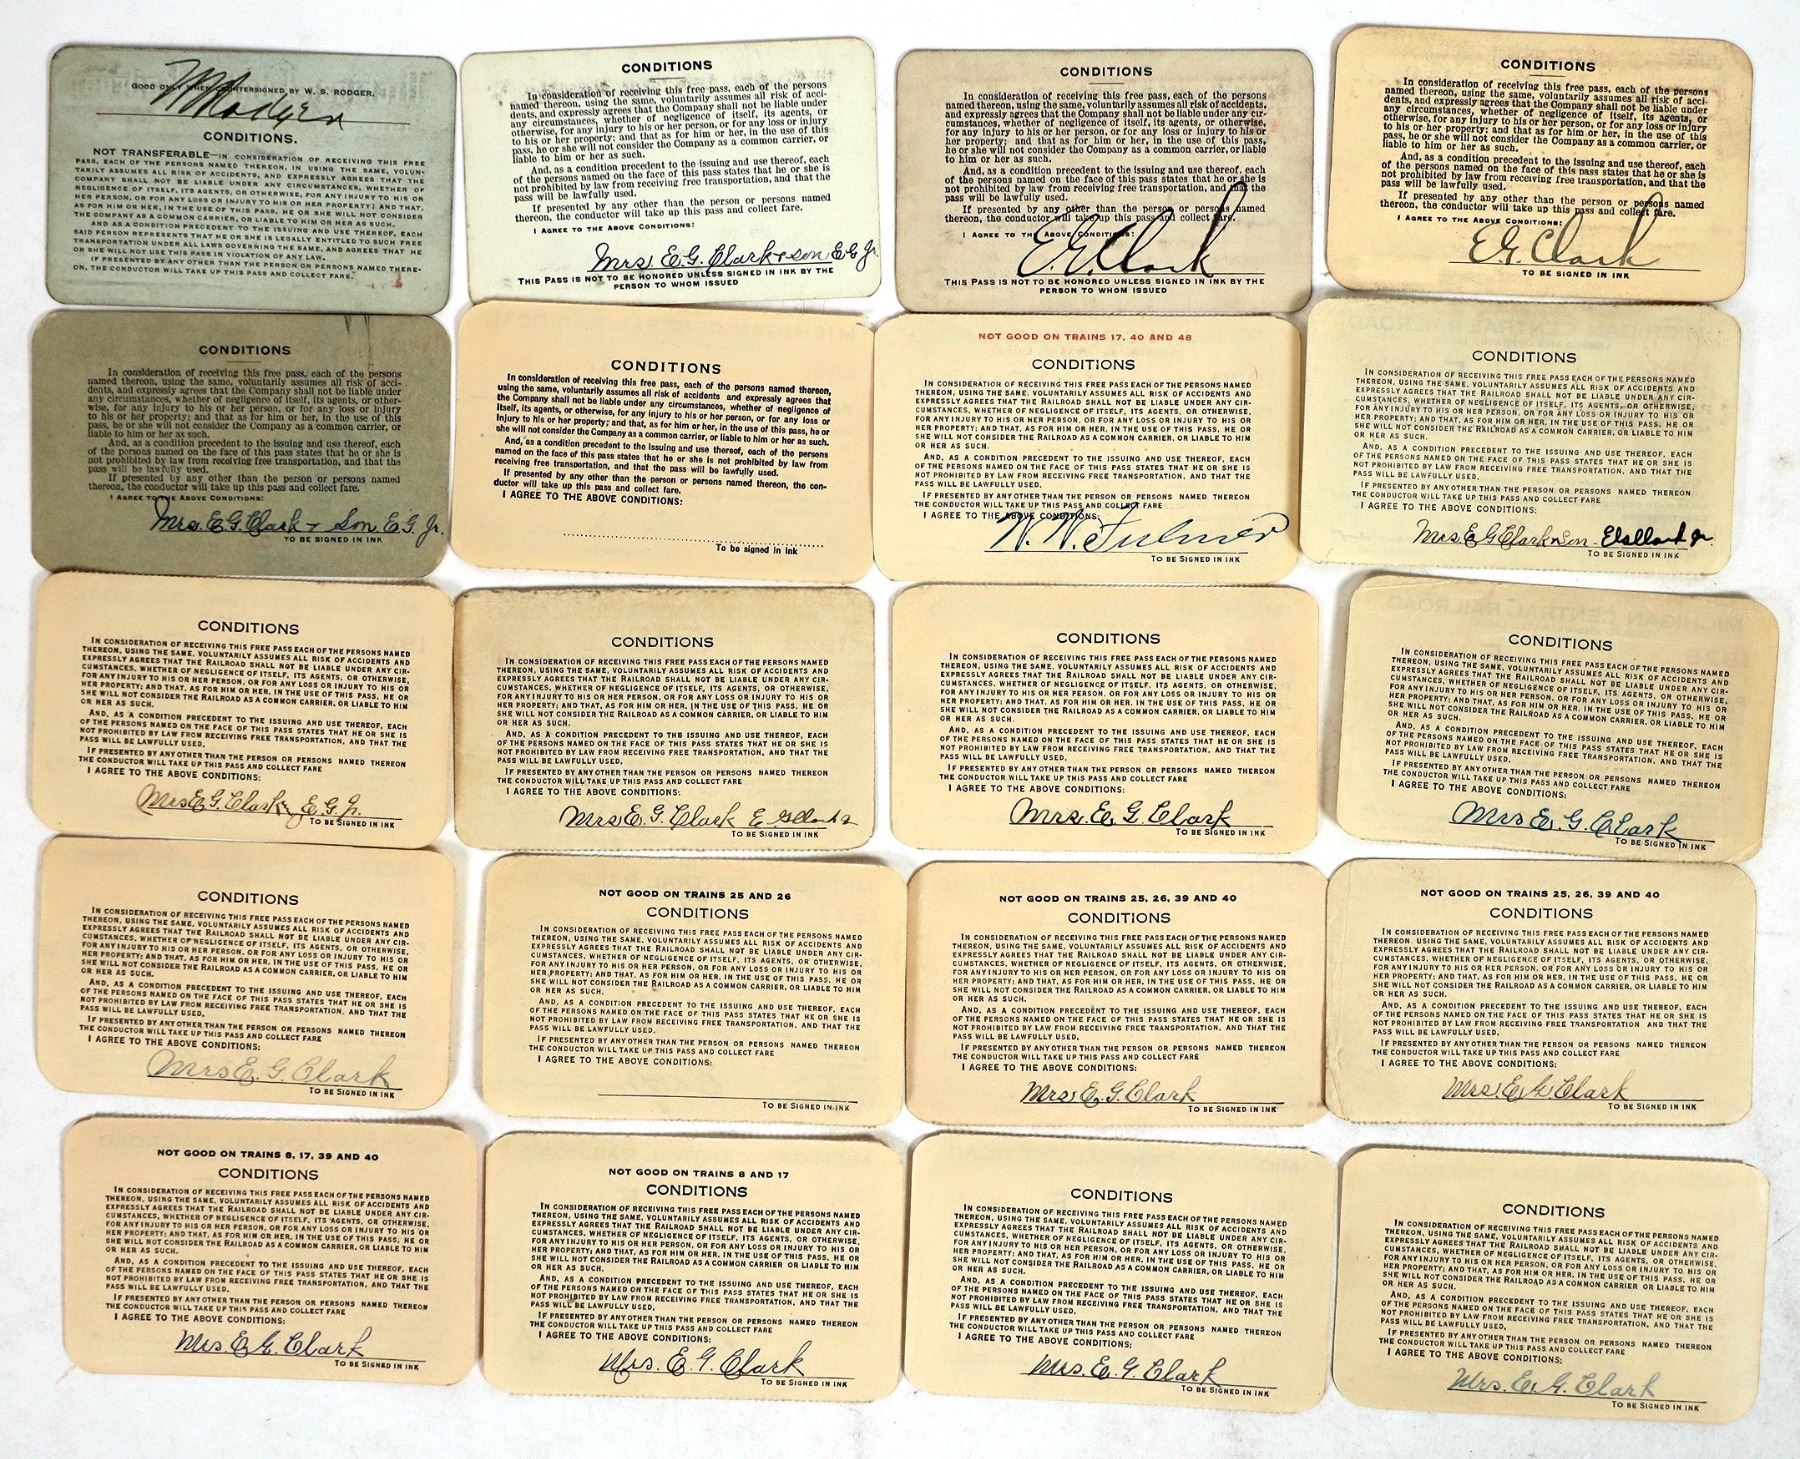 W S Rodger
GOOD ONLY WHEN COUNTERSIGNED BY W. S. RODGER.
CONDITIONS.
NOT TRANSFERABLE—IN CONSIDERATION OF RECEIVING THIS FREE
PASS, EACH OF THE PERSONS NAMED THEREON, IN USING THE SAME, VOLUN-
TARILY ASSUMES ALL RISK OF ACCIDENTS, AND EXPRESSLY AGREES THAT THE
COMPANY SHALL NOT BE LIABLE UNDER ANY CIRCUMSTANCES, WHETHER OF
NEGLIGENCE OF ITSELF, ITS AGENTS, OR OTHERWISE, FOR ANY INJURY TO HIS OR
HER PERSON, OR FOR ANY LOSS OR INJURY TO HIS OR HER PROPERTY; AND THAT,
AS FOR HIM OR HER, IN THE USE OF THIS PASS, HE OR SHE WILL NOT CONSIDER
THE COMPANY AS A COMMON CARRIER, OR LIABLE TO HIM OR HER AS SUCH.
AND AS A CONDITION PRECEDENT TO THE ISSUING AND USE THEREOF, EACH
SAID PERSON REPRESENTS THAT HE OR SHE IS LEGALLY ENTITLED TO SUCH FREE
TRANSPORTATION UNDER ALL LAWS GOVERNING THE SAME, AND AGREES THAT HE
OR SHE WILL NOT USE THIS PASS IN VIOLATION OF ANY LAW.
IF PRESENTED BY ANY OTHER THAN THE PERSON OR PERSONS NAMED THERE-
ON, THE CONDUCTOR WILL TAKE UP THIS PASS AND COLLECT FARE.
CONDITIONS
In consideration of receiving this free pass, each of the persons
named thereon, using the same, voluntarily assumes all risk of acci-
dents, and expressly agrees that the Company shall not be liable under
any circumstances, whether of negligence of itself, its agents, or
otherwise, for any injury to his or her person, or for any loss or injury
to his or her property; and that as for him or her, in the use of this
pass, he or she will not consider the Company as a common carrier, or
liable to him or her as such.
And, as a condition precedent to the issuing and use thereof, each
of the persons named on the face of this pass states that he or she is
not prohibited by law from receiving free transportation, and that the
pass will be lawfully used.
If presented by any other than the person or persons named
thereon, the conductor will take up this pass and collect fare.
I AGREE TO THE ABOVE CONDITIONS:
Mrs. E.G. Clark & son E G Jr.
THIS PASS IS NOT TO BE HONORED UNLESS SIGNED IN INK BY THE
PERSON TO WHOM ISSUED
CONDITIONS
In consideration of receiving this free pass, each of the persons
named thereon, using the same, voluntarily assumes all risk of accidents,
and expressly agrees that the Company shall not be liable under any cir-
cumstances, whether of negligence of itself, its agents, or otherwise,
for any injury to his or her person, or for any loss or injury to his or
her property; and that as for him or her, in the use of this pass,
he or she will not consider the Company as a common carrier, or liable
to him or her as such.
And, as a condition precedent to the issuing and use thereof, each
of the persons named on the face of this pass states that he or she is
not prohibited by law from receiving free transportation, and that the
pass will be lawfully used.
If presented by any other than the person or persons named
thereon, the conductor will take up this pass and collect fare.
I AGREE TO THE ABOVE CONDITIONS:
E.G. Clark
THIS PASS IS NOT TO BE HONORED UNLESS SIGNED IN INK BY THE
PERSON TO WHOM ISSUED
CONDITIONS
In consideration of receiving this free pass, each of the persons
named thereon, using the same, voluntarily assumes all risk of acci-
dents, and expressly agrees that the Company shall not be liable under
any circumstances, whether of negligence of itself, its agents, or
otherwise, for any injury to his or her person, or for any loss or injury
to his or her property; and that as for him or her, in the use of this
pass, he or she will not consider the Company as a common carrier, or
liable to him or her as such.
And, as a condition precedent to the issuing and use thereof, each
of the persons named on the face of this pass states that he or she is
not prohibited by law from receiving free transportation, and that the
pass will be lawfully used.
If presented by any other than the person or persons named
thereon, the conductor will take up this pass and collect fare.
I AGREE TO THE ABOVE CONDITIONS:
E.G. Clark
TO BE SIGNED IN INK
CONDITIONS
In consideration of receiving this free pass, each of the persons
named thereon, using the same, voluntarily assumes all risk of acci-
dents, and expressly agrees that the Company shall not be liable under
any circumstances, whether of negligence of itself, its agents, or other-
wise, for any injury to his or her person, or for any loss or injury
to his or her property; and that as for him or her, in the use of this
pass, he or she will not consider the Company as a common carrier, or
liable to him or her as such.
And, as a condition precedent to the issuing and use thereof, each
of the persons named on the face of this pass states that he or she is
not prohibited by law from receiving free transportation, and that the
pass will be lawfully used.
If presented by any other than the person or persons named
thereon, the conductor will take up this pass and collect fare.
I AGREE TO THE ABOVE CONDITIONS:
Mrs. E.G. Clark & Son E.G. Jr.
TO BE SIGNED IN INK
CONDITIONS
In consideration of receiving this free pass, each of the persons named thereon,
using the same, voluntarily assumes all risk of accidents and expressly agrees that
the Company shall not be liable under any circumstances, whether of negligence of
itself, its agents, or otherwise, for any injury to his or her person, or for any loss or
injury to his or her property; and that, as for him or her, in the use of this pass, he or
she will not consider the Company as a common carrier, or liable to him or her as such.
And, as a condition precedent to the issuing and use thereof, each of the persons
named on the face of this pass states that he or she is not prohibited by law from
receiving free transportation, and that the pass will be lawfully used.
If presented by any other than the person or persons named thereon, the con-
ductor will take up this pass and collect fare.
I AGREE TO THE ABOVE CONDITIONS:
To be signed in ink
NOT GOOD ON TRAINS 17, 40 AND 48
CONDITIONS
IN CONSIDERATION OF RECEIVING THIS FREE PASS EACH OF THE PERSONS NAMED
THEREON, USING THE SAME, VOLUNTARILY ASSUMES ALL RISK OF ACCIDENTS AND
EXPRESSLY AGREES THAT THE RAILROAD SHALL NOT BE LIABLE UNDER ANY CIR-
CUMSTANCES, WHETHER OF NEGLIGENCE OF ITSELF, ITS AGENTS, OR OTHERWISE,
FOR ANY INJURY TO HIS OR HER PERSON, OR FOR ANY LOSS OR INJURY TO HIS OR
HER PROPERTY; AND THAT, AS FOR HIM OR HER, IN THE USE OF THIS PASS, HE OR
SHE WILL NOT CONSIDER THE RAILROAD AS A COMMON CARRIER, OR LIABLE TO HIM
OR HER AS SUCH.
AND, AS A CONDITION PRECEDENT TO THE ISSUING AND USE THEREOF, EACH
OF THE PERSONS NAMED ON THE FACE OF THIS PASS STATES THAT HE OR SHE IS
NOT PROHIBITED BY LAW FROM RECEIVING FREE TRANSPORTATION, AND THAT THE
PASS WILL BE LAWFULLY USED.
IF PRESENTED BY ANY OTHER THAN THE PERSON OR PERSONS NAMED THEREON
THE CONDUCTOR WILL TAKE UP THIS PASS AND COLLECT FARE
I AGREE TO THE ABOVE CONDITIONS:
W. W. Fulmer
TO BE SIGNED IN INK
CONDITIONS
IN CONSIDERATION OF RECEIVING THIS FREE PASS EACH OF THE PERSONS NAMED
THEREON, USING THE SAME, VOLUNTARILY ASSUMES ALL RISK OF ACCIDENTS AND
EXPRESSLY AGREES THAT THE RAILROAD SHALL NOT BE LIABLE UNDER ANY CIR-
CUMSTANCES, WHETHER OF NEGLIGENCE OF ITSELF, ITS AGENTS, OR OTHERWISE,
FOR ANY INJURY TO HIS OR HER PERSON, OR FOR ANY LOSS OR INJURY TO HIS OR
HER PROPERTY; AND THAT, AS FOR HIM OR HER, IN THE USE OF THIS PASS, HE OR
SHE WILL NOT CONSIDER THE RAILROAD AS A COMMON CARRIER, OR LIABLE TO HIM
OR HER AS SUCH.
AND, AS A CONDITION PRECEDENT TO THE ISSUING AND USE THEREOF, EACH
OF THE PERSONS NAMED ON THE FACE OF THIS PASS STATES THAT HE OR SHE IS
NOT PROHIBITED BY LAW FROM RECEIVING FREE TRANSPORTATION, AND THAT THE
PASS WILL BE LAWFULLY USED.
IF PRESENTED BY ANY OTHER THAN THE PERSON OR PERSONS NAMED THEREON
THE CONDUCTOR WILL TAKE UP THIS PASS AND COLLECT FARE
I AGREE TO THE ABOVE CONDITIONS:
Mrs. E G Clark & Son - E G Clark Jr.
TO BE SIGNED IN INK
CONDITIONS
IN CONSIDERATION OF RECEIVING THIS FREE PASS EACH OF THE PERSONS NAMED
THEREON, USING THE SAME, VOLUNTARILY ASSUMES ALL RISK OF ACCIDENTS AND
EXPRESSLY AGREES THAT THE RAILROAD SHALL NOT BE LIABLE UNDER ANY CIR-
CUMSTANCES, WHETHER OF NEGLIGENCE OF ITSELF, ITS AGENTS, OR OTHERWISE,
FOR ANY INJURY TO HIS OR HER PERSON, OR FOR ANY LOSS OR INJURY TO HIS OR
HER PROPERTY; AND THAT, AS FOR HIM OR HER, IN THE USE OF THIS PASS, HE OR
SHE WILL NOT CONSIDER THE RAILROAD AS A COMMON CARRIER, OR LIABLE TO HIM
OR HER AS SUCH.
AND, AS A CONDITION PRECEDENT TO THE ISSUING AND USE THEREOF, EACH
OF THE PERSONS NAMED ON THE FACE OF THIS PASS STATES THAT HE OR SHE IS
NOT PROHIBITED BY LAW FROM RECEIVING FREE TRANSPORTATION, AND THAT THE
PASS WILL BE LAWFULLY USED.
IF PRESENTED BY ANY OTHER THAN THE PERSON OR PERSONS NAMED THEREON
THE CONDUCTOR WILL TAKE UP THIS PASS AND COLLECT FARE
I AGREE TO THE ABOVE CONDITIONS:
Mrs E.G. Clark & E.G. Jr.
TO BE SIGNED IN INK
CONDITIONS
IN CONSIDERATION OF RECEIVING THIS FREE PASS EACH OF THE PERSONS NAMED
THEREON, USING THE SAME, VOLUNTARILY ASSUMES ALL RISK OF ACCIDENTS AND
EXPRESSLY AGREES THAT THE RAILROAD SHALL NOT BE LIABLE UNDER ANY CIR-
CUMSTANCES, WHETHER OF NEGLIGENCE OF ITSELF, ITS AGENTS, OR OTHERWISE,
FOR ANY INJURY TO HIS OR HER PERSON, OR FOR ANY LOSS OR INJURY TO HIS OR
HER PROPERTY; AND THAT, AS FOR HIM OR HER, IN THE USE OF THIS PASS, HE OR
SHE WILL NOT CONSIDER THE RAILROAD AS A COMMON CARRIER, OR LIABLE TO HIM
OR HER AS SUCH.
AND, AS A CONDITION PRECEDENT TO THE ISSUING AND USE THEREOF, EACH
OF THE PERSONS NAMED ON THE FACE OF THIS PASS STATES THAT HE OR SHE IS
NOT PROHIBITED BY LAW FROM RECEIVING FREE TRANSPORTATION, AND THAT THE
PASS WILL BE LAWFULLY USED.
IF PRESENTED BY ANY OTHER THAN THE PERSON OR PERSONS NAMED THEREON
THE CONDUCTOR WILL TAKE UP THIS PASS AND COLLECT FARE
I AGREE TO THE ABOVE CONDITIONS:
Mrs. E. G. Clark E. G Clark Jr
TO BE SIGNED IN INK
CONDITIONS
IN CONSIDERATION OF RECEIVING THIS FREE PASS EACH OF THE PERSONS NAMED
THEREON, USING THE SAME, VOLUNTARILY ASSUMES ALL RISK OF ACCIDENTS AND
EXPRESSLY AGREES THAT THE RAILROAD SHALL NOT BE LIABLE UNDER ANY CIR-
CUMSTANCES, WHETHER OF NEGLIGENCE OF ITSELF, ITS AGENTS, OR OTHERWISE,
FOR ANY INJURY TO HIS OR HER PERSON, OR FOR ANY LOSS OR INJURY TO HIS OR
HER PROPERTY; AND THAT, AS FOR HIM OR HER, IN THE USE OF THIS PASS, HE OR
SHE WILL NOT CONSIDER THE RAILROAD AS A COMMON CARRIER, OR LIABLE TO HIM
OR HER AS SUCH.
AND, AS A CONDITION PRECEDENT TO THE ISSUING AND USE THEREOF, EACH
OF THE PERSONS NAMED ON THE FACE OF THIS PASS STATES THAT HE OR SHE IS
NOT PROHIBITED BY LAW FROM RECEIVING FREE TRANSPORTATION, AND THAT THE
PASS WILL BE LAWFULLY USED.
IF PRESENTED BY ANY OTHER THAN THE PERSON OR PERSONS NAMED THEREON
THE CONDUCTOR WILL TAKE UP THIS PASS AND COLLECT FARE
I AGREE TO THE ABOVE CONDITIONS:
Mrs. E. G. Clark
TO BE SIGNED IN INK
CONDITIONS
IN CONSIDERATION OF RECEIVING THIS FREE PASS EACH OF THE PERSONS NAMED
THEREON, USING THE SAME, VOLUNTARILY ASSUMES ALL RISK OF ACCIDENTS AND
EXPRESSLY AGREES THAT THE RAILROAD SHALL NOT BE LIABLE UNDER ANY CIR-
CUMSTANCES, WHETHER OF NEGLIGENCE OF ITSELF, ITS AGENTS, OR OTHERWISE,
FOR ANY INJURY TO HIS OR HER PERSON, OR FOR ANY LOSS OR INJURY TO HIS OR
HER PROPERTY; AND THAT, AS FOR HIM OR HER, IN THE USE OF THIS PASS, HE OR
SHE WILL NOT CONSIDER THE RAILROAD AS A COMMON CARRIER, OR LIABLE TO HIM
OR HER AS SUCH.
AND, AS A CONDITION PRECEDENT TO THE ISSUING AND USE THEREOF, EACH
OF THE PERSONS NAMED ON THE FACE OF THIS PASS STATES THAT HE OR SHE IS
NOT PROHIBITED BY LAW FROM RECEIVING FREE TRANSPORTATION, AND THAT THE
PASS WILL BE LAWFULLY USED.
IF PRESENTED BY ANY OTHER THAN THE PERSON OR PERSONS NAMED THEREON
THE CONDUCTOR WILL TAKE UP THIS PASS AND COLLECT FARE
I AGREE TO THE ABOVE CONDITIONS:
Mrs E. G. Clark
TO BE SIGNED IN INK
CONDITIONS
IN CONSIDERATION OF RECEIVING THIS FREE PASS EACH OF THE PERSONS NAMED
THEREON, USING THE SAME, VOLUNTARILY ASSUMES ALL RISK OF ACCIDENTS AND
EXPRESSLY AGREES THAT THE RAILROAD SHALL NOT BE LIABLE UNDER ANY CIR-
CUMSTANCES, WHETHER OF NEGLIGENCE OF ITSELF, ITS AGENTS, OR OTHERWISE,
FOR ANY INJURY TO HIS OR HER PERSON, OR FOR ANY LOSS OR INJURY TO HIS OR
HER PROPERTY; AND THAT, AS FOR HIM OR HER, IN THE USE OF THIS PASS, HE OR
SHE WILL NOT CONSIDER THE RAILROAD AS A COMMON CARRIER, OR LIABLE TO HIM
OR HER AS SUCH.
AND, AS A CONDITION PRECEDENT TO THE ISSUING AND USE THEREOF, EACH
OF THE PERSONS NAMED ON THE FACE OF THIS PASS STATES THAT HE OR SHE IS
NOT PROHIBITED BY LAW FROM RECEIVING FREE TRANSPORTATION, AND THAT THE
PASS WILL BE LAWFULLY USED.
IF PRESENTED BY ANY OTHER THAN THE PERSON OR PERSONS NAMED THEREON
THE CONDUCTOR WILL TAKE UP THIS PASS AND COLLECT FARE
I AGREE TO THE ABOVE CONDITIONS:
Mrs E. G. Clark
TO BE SIGNED IN INK
NOT GOOD ON TRAINS 25 AND 26
CONDITIONS
IN CONSIDERATION OF RECEIVING THIS FREE PASS EACH OF THE PERSONS NAMED
THEREON, USING THE SAME, VOLUNTARILY ASSUMES ALL RISK OF ACCIDENTS AND
EXPRESSLY AGREES THAT THE RAILROAD SHALL NOT BE LIABLE UNDER ANY CIR-
CUMSTANCES, WHETHER OF NEGLIGENCE OF ITSELF, ITS AGENTS, OR OTHERWISE,
FOR ANY INJURY TO HIS OR HER PERSON, OR FOR ANY LOSS OR INJURY TO HIS OR
HER PROPERTY; AND THAT, AS FOR HIM OR HER, IN THE USE OF THIS PASS, HE OR
SHE WILL NOT CONSIDER THE RAILROAD AS A COMMON CARRIER, OR LIABLE TO HIM
OR HER AS SUCH.
AND, AS A CONDITION PRECEDENT TO THE ISSUING AND USE THEREOF, EACH
OF THE PERSONS NAMED ON THE FACE OF THIS PASS STATES THAT HE OR SHE IS
NOT PROHIBITED BY LAW FROM RECEIVING FREE TRANSPORTATION, AND THAT THE
PASS WILL BE LAWFULLY USED.
IF PRESENTED BY ANY OTHER THAN THE PERSON OR PERSONS NAMED THEREON
THE CONDUCTOR WILL TAKE UP THIS PASS AND COLLECT FARE
I AGREE TO THE ABOVE CONDITIONS:
TO BE SIGNED IN INK
NOT GOOD ON TRAINS 25, 26, 39 AND 40
CONDITIONS
IN CONSIDERATION OF RECEIVING THIS FREE PASS EACH OF THE PERSONS NAMED
THEREON, USING THE SAME, VOLUNTARILY ASSUMES ALL RISK OF ACCIDENTS AND
EXPRESSLY AGREES THAT THE RAILROAD SHALL NOT BE LIABLE UNDER ANY CIR-
CUMSTANCES, WHETHER OF NEGLIGENCE OF ITSELF, ITS AGENTS, OR OTHERWISE,
FOR ANY INJURY TO HIS OR HER PERSON, OR FOR ANY LOSS OR INJURY TO HIS OR
HER PROPERTY; AND THAT, AS FOR HIM OR HER, IN THE USE OF THIS PASS, HE OR
SHE WILL NOT CONSIDER THE RAILROAD AS A COMMON CARRIER, OR LIABLE TO HIM
OR HER AS SUCH.
AND, AS A CONDITION PRECEDENT TO THE ISSUING AND USE THEREOF, EACH
OF THE PERSONS NAMED ON THE FACE OF THIS PASS STATES THAT HE OR SHE IS
NOT PROHIBITED BY LAW FROM RECEIVING FREE TRANSPORTATION, AND THAT THE
PASS WILL BE LAWFULLY USED.
IF PRESENTED BY ANY OTHER THAN THE PERSON OR PERSONS NAMED THEREON
THE CONDUCTOR WILL TAKE UP THIS PASS AND COLLECT FARE
I AGREE TO THE ABOVE CONDITIONS:
Mrs. E. G. Clark
TO BE SIGNED IN INK
NOT GOOD ON TRAINS 25, 26, 39 AND 40
CONDITIONS
IN CONSIDERATION OF RECEIVING THIS FREE PASS EACH OF THE PERSONS NAMED
THEREON, USING THE SAME, VOLUNTARILY ASSUMES ALL RISK OF ACCIDENTS AND
EXPRESSLY AGREES THAT THE RAILROAD SHALL NOT BE LIABLE UNDER ANY CIR-
CUMSTANCES, WHETHER OF NEGLIGENCE OF ITSELF, ITS AGENTS, OR OTHERWISE,
FOR ANY INJURY TO HIS OR HER PERSON, OR FOR ANY LOSS OR INJURY TO HIS OR
HER PROPERTY; AND THAT, AS FOR HIM OR HER, IN THE USE OF THIS PASS, HE OR
SHE WILL NOT CONSIDER THE RAILROAD AS A COMMON CARRIER, OR LIABLE TO HIM
OR HER AS SUCH.
AND, AS A CONDITION PRECEDENT TO THE ISSUING AND USE THEREOF, EACH
OF THE PERSONS NAMED ON THE FACE OF THIS PASS STATES THAT HE OR SHE IS
NOT PROHIBITED BY LAW FROM RECEIVING FREE TRANSPORTATION, AND THAT THE
PASS WILL BE LAWFULLY USED.
IF PRESENTED BY ANY OTHER THAN THE PERSON OR PERSONS NAMED THEREON
THE CONDUCTOR WILL TAKE UP THIS PASS AND COLLECT FARE
I AGREE TO THE ABOVE CONDITIONS:
Mrs. E. G. Clark
TO BE SIGNED IN INK
NOT GOOD ON TRAINS 8, 17, 39 AND 40
CONDITIONS
IN CONSIDERATION OF RECEIVING THIS FREE PASS EACH OF THE PERSONS NAMED
THEREON, USING THE SAME, VOLUNTARILY ASSUMES ALL RISK OF ACCIDENTS AND
EXPRESSLY AGREES THAT THE RAILROAD SHALL NOT BE LIABLE UNDER ANY CIR-
CUMSTANCES, WHETHER OF NEGLIGENCE OF ITSELF, ITS AGENTS, OR OTHERWISE,
FOR ANY INJURY TO HIS OR HER PERSON, OR FOR ANY LOSS OR INJURY TO HIS OR
HER PROPERTY; AND THAT, AS FOR HIM OR HER, IN THE USE OF THIS PASS, HE OR
SHE WILL NOT CONSIDER THE RAILROAD AS A COMMON CARRIER, OR LIABLE TO HIM
OR HER AS SUCH.
AND, AS A CONDITION PRECEDENT TO THE ISSUING AND USE THEREOF, EACH
OF THE PERSONS NAMED ON THE FACE OF THIS PASS STATES THAT HE OR SHE IS
NOT PROHIBITED BY LAW FROM RECEIVING FREE TRANSPORTATION, AND THAT THE
PASS WILL BE LAWFULLY USED.
IF PRESENTED BY ANY OTHER THAN THE PERSON OR PERSONS NAMED THEREON
THE CONDUCTOR WILL TAKE UP THIS PASS AND COLLECT FARE
I AGREE TO THE ABOVE CONDITIONS:
Mrs. E. G. Clark
TO BE SIGNED IN INK
NOT GOOD ON TRAINS 8 AND 17
CONDITIONS
IN CONSIDERATION OF RECEIVING THIS FREE PASS EACH OF THE PERSONS NAMED
THEREON, USING THE SAME, VOLUNTARILY ASSUMES ALL RISK OF ACCIDENTS AND
EXPRESSLY AGREES THAT THE RAILROAD SHALL NOT BE LIABLE UNDER ANY CIR-
CUMSTANCES, WHETHER OF NEGLIGENCE OF ITSELF, ITS AGENTS, OR OTHERWISE,
FOR ANY INJURY TO HIS OR HER PERSON, OR FOR ANY LOSS OR INJURY TO HIS OR
HER PROPERTY; AND THAT, AS FOR HIM OR HER, IN THE USE OF THIS PASS, HE OR
SHE WILL NOT CONSIDER THE RAILROAD AS A COMMON CARRIER, OR LIABLE TO HIM
OR HER AS SUCH.
AND, AS A CONDITION PRECEDENT TO THE ISSUING AND USE THEREOF, EACH
OF THE PERSONS NAMED ON THE FACE OF THIS PASS STATES THAT HE OR SHE IS
NOT PROHIBITED BY LAW FROM RECEIVING FREE TRANSPORTATION, AND THAT THE
PASS WILL BE LAWFULLY USED.
IF PRESENTED BY ANY OTHER THAN THE PERSON OR PERSONS NAMED THEREON
THE CONDUCTOR WILL TAKE UP THIS PASS AND COLLECT FARE
I AGREE TO THE ABOVE CONDITIONS:
Mrs. E. G. Clark
TO BE SIGNED IN INK
CONDITIONS
IN CONSIDERATION OF RECEIVING THIS FREE PASS EACH OF THE PERSONS NAMED
THEREON, USING THE SAME, VOLUNTARILY ASSUMES ALL RISK OF ACCIDENTS AND
EXPRESSLY AGREES THAT THE RAILROAD SHALL NOT BE LIABLE UNDER ANY CIR-
CUMSTANCES, WHETHER OF NEGLIGENCE OF ITSELF, ITS AGENTS, OR OTHERWISE,
FOR ANY INJURY TO HIS OR HER PERSON, OR FOR ANY LOSS OR INJURY TO HIS OR
HER PROPERTY; AND THAT, AS FOR HIM OR HER, IN THE USE OF THIS PASS, HE OR
SHE WILL NOT CONSIDER THE RAILROAD AS A COMMON CARRIER, OR LIABLE TO HIM
OR HER AS SUCH.
AND, AS A CONDITION PRECEDENT TO THE ISSUING AND USE THEREOF, EACH
OF THE PERSONS NAMED ON THE FACE OF THIS PASS STATES THAT HE OR SHE IS
NOT PROHIBITED BY LAW FROM RECEIVING FREE TRANSPORTATION, AND THAT THE
PASS WILL BE LAWFULLY USED.
IF PRESENTED BY ANY OTHER THAN THE PERSON OR PERSONS NAMED THEREON
THE CONDUCTOR WILL TAKE UP THIS PASS AND COLLECT FARE
I AGREE TO THE ABOVE CONDITIONS:
Mrs. E. G. Clark
TO BE SIGNED IN INK
CONDITIONS
IN CONSIDERATION OF RECEIVING THIS FREE PASS EACH OF THE PERSONS NAMED
THEREON, USING THE SAME, VOLUNTARILY ASSUMES ALL RISK OF ACCIDENTS AND
EXPRESSLY AGREES THAT THE RAILROAD SHALL NOT BE LIABLE UNDER ANY CIR-
CUMSTANCES, WHETHER OF NEGLIGENCE OF ITSELF, ITS AGENTS, OR OTHERWISE,
FOR ANY INJURY TO HIS OR HER PERSON, OR FOR ANY LOSS OR INJURY TO HIS OR
HER PROPERTY; AND THAT, AS FOR HIM OR HER, IN THE USE OF THIS PASS, HE OR
SHE WILL NOT CONSIDER THE RAILROAD AS A COMMON CARRIER OR LIABLE TO HIM
OR HER AS SUCH.
AND, AS A CONDITION PRECEDENT TO THE ISSUING AND USE THEREOF, EACH
OF THE PERSONS NAMED ON THE FACE OF THIS PASS STATES THAT HE OR SHE IS
NOT PROHIBITED BY LAW FROM RECEIVING FREE TRANSPORTATION, AND THAT THE
PASS WILL BE LAWFULLY USED.
IF PRESENTED BY ANY OTHER THAN THE PERSON OR PERSONS NAMED THEREON
THE CONDUCTOR WILL TAKE UP THIS PASS AND COLLECT FARE
I AGREE TO THE ABOVE CONDITIONS:
Mrs. E. G. Clark
TO BE SIGNED IN INK